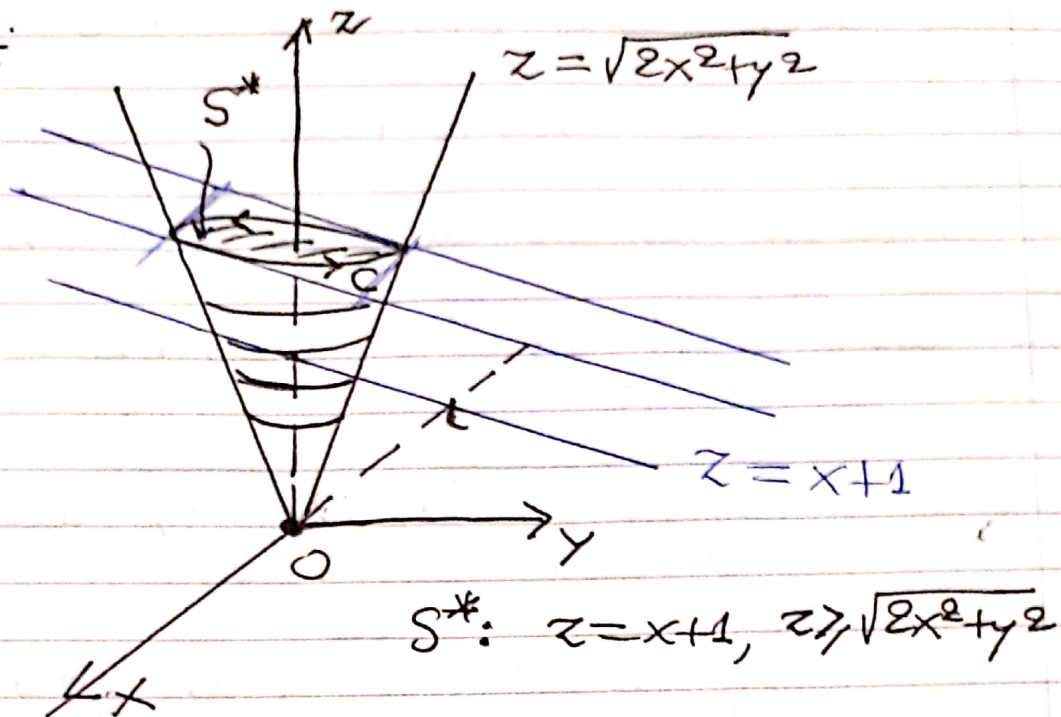 z
z = √2x²+y²
S*
C
z = x+1
y
O
S*: z = x+1, z ⩾ √2x²+y²
x